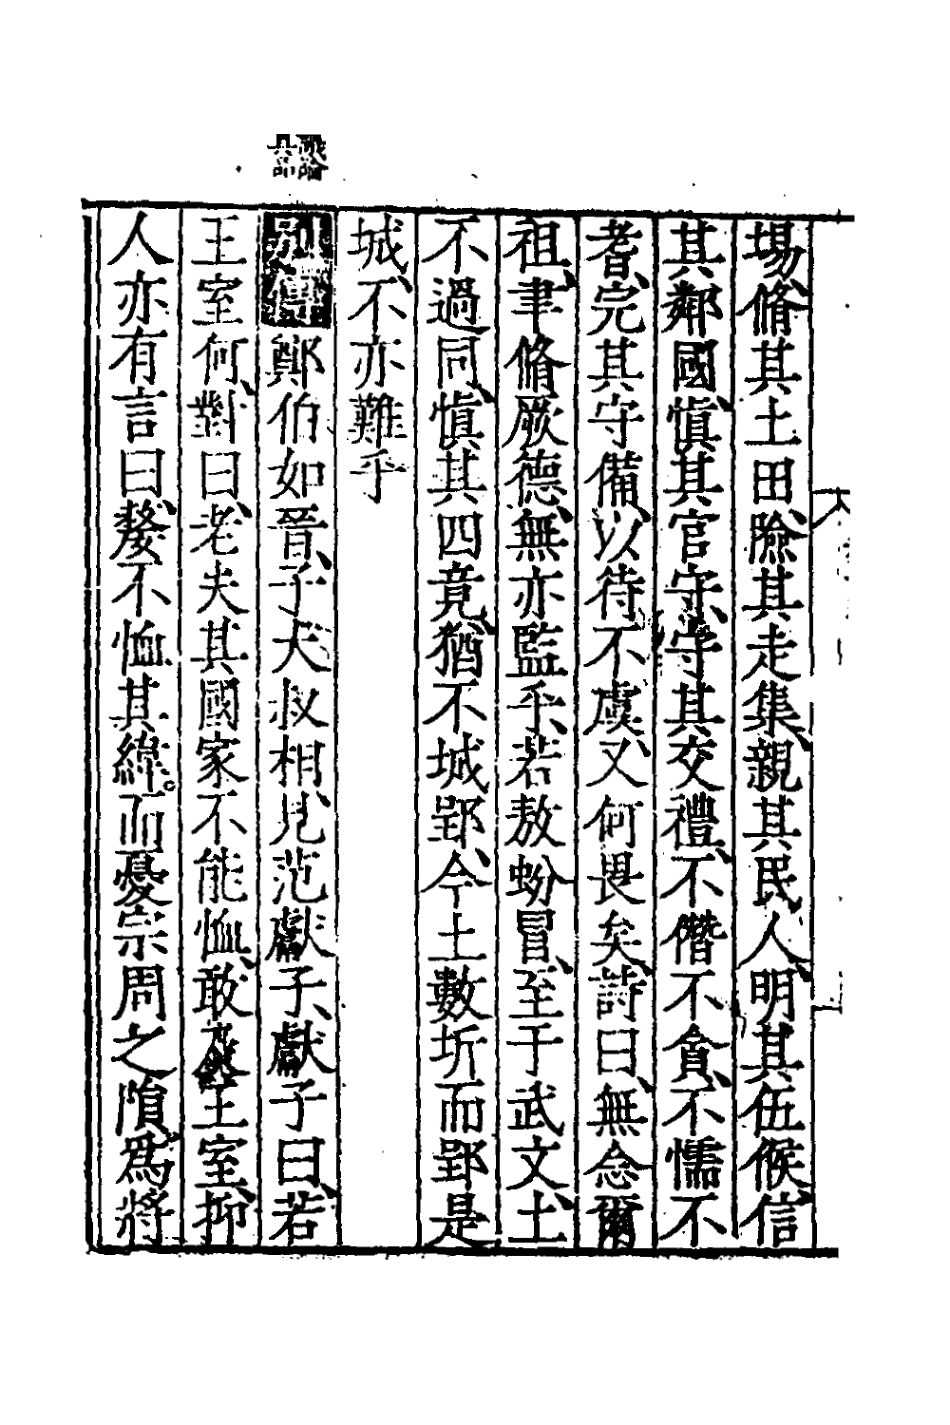 議論
具品
場脩其土田險其走集親其民人明其伍候信
其鄰國慎其官守守其交禮不僭不貪不懦不
耆完其守備以待不虞又何畏矣詩曰無念爾
祖聿脩厥德無亦監乎若敖蚡冒至于武文土
不過同慎其四竟猶不城郢今土數圻而郢是
城不亦難乎
鄭伯如晉子大叔相見范獻子獻子曰若
王室何對曰老夫其國家不能恤敢及王室抑
人亦有言曰嫠不恤其緯而憂宗周之隕為將